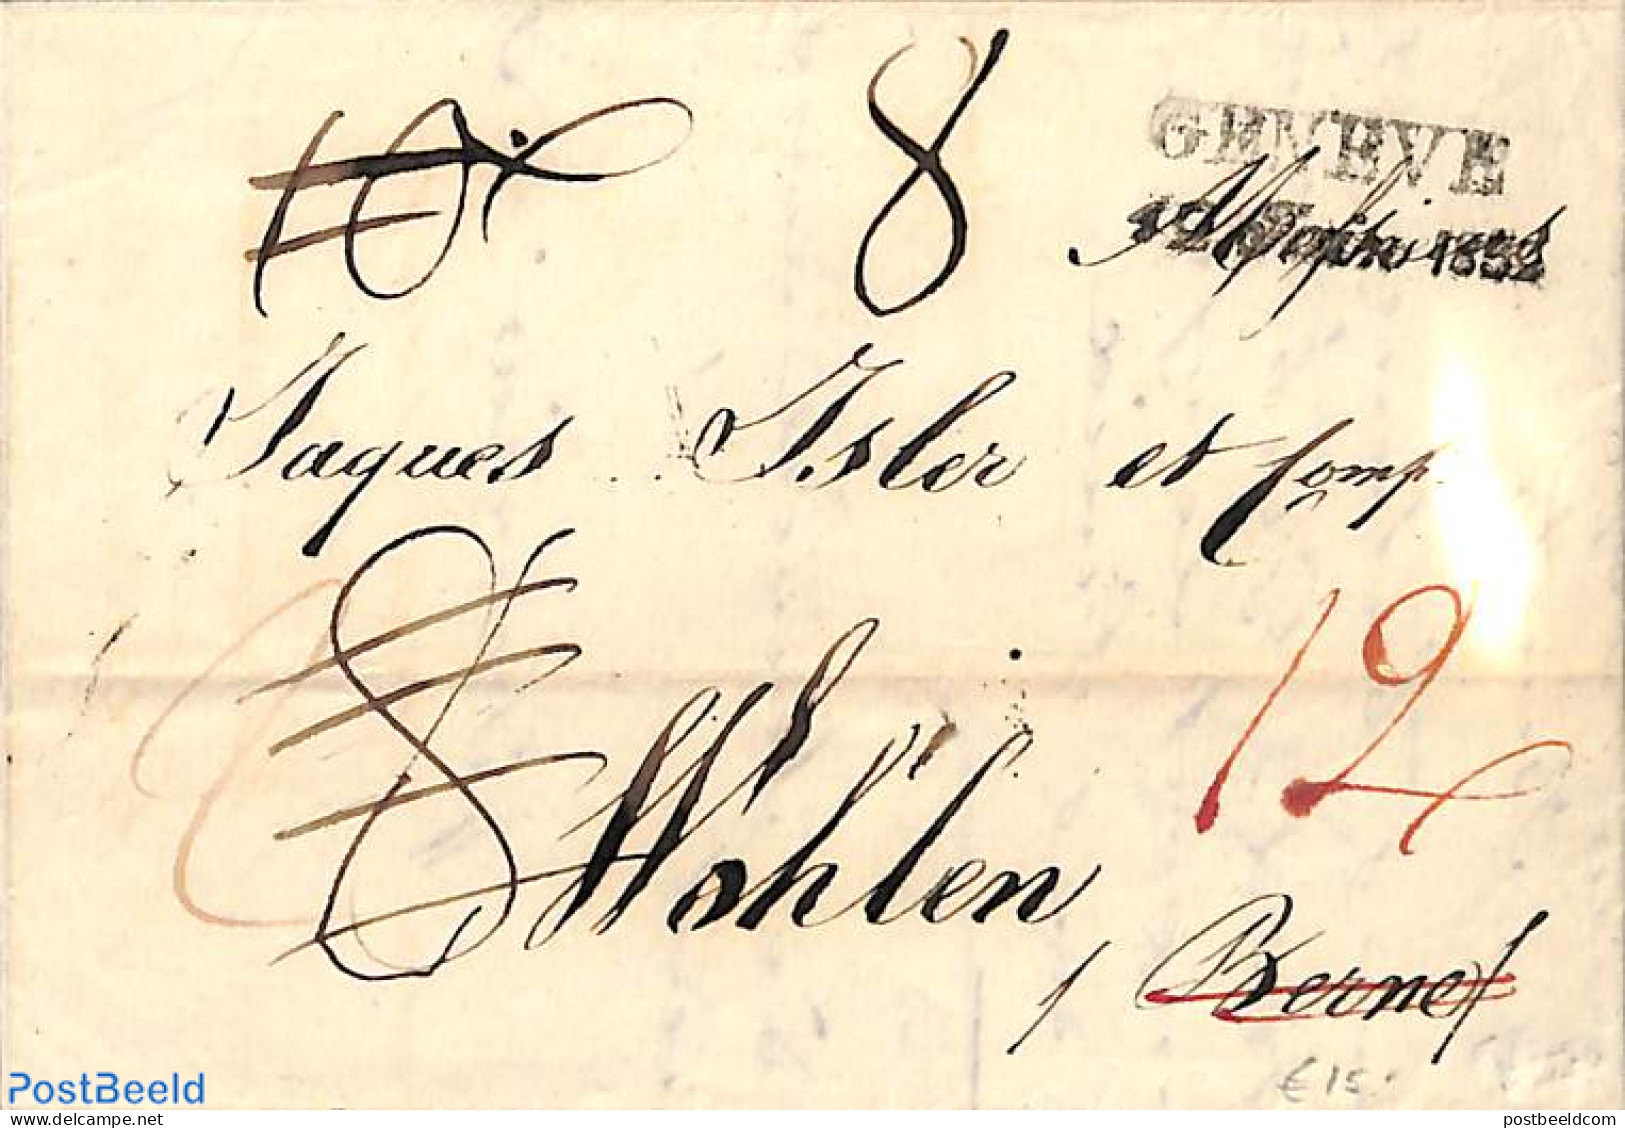 10.
8
GENEVE
Messieurs
1832
Jaques Isler et Comp.
8
12
Wohlen
(Berne)
€ 15.
PostBeeld
www.postbeeld.com
postbeeldcom